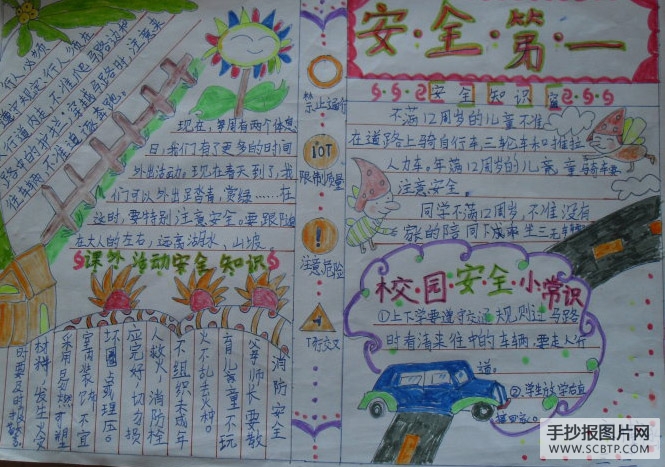 安·全·第·一
安全知识
不满12周岁的儿童不准
在道路上骑自行车三轮车和推拉
人力车。年满12周岁的儿童
注意安全。
同学不满12周岁,不准没有
家的陪同下
校·园·安·全·小常识
①上下学要遵守交通规则过马路
时看清来往中的车辆,要走人行
道。
②学生放学后
行人必须
遵守规定:行人须在
行道内走,不准爬马路边和
路中的护栏;穿越马路时,注意来
往车辆,不准追逐奔跑。
现在,每周有两个休息
日,我们有了更多的时间
外出活动。现在春天到了,我
们可以外出踏青,赏绿……在
这时,要特别注意安全。要跟随
在大人的左右,远离湖水,山坡。
课外活动安全知识
消防安全
父辈师长要教
育儿童不玩
火不乱丢火种。
不组织未成年
人救火,消防栓
应完好,切勿损
坏圈占埋压。
室内装饰不宜
采用易燃可塑
材料,发生火灾
时要及时报警
禁止通行
10T
限制质量
!
注意危险
T行交叉
手抄报图片网
WWW.SCBTP.COM